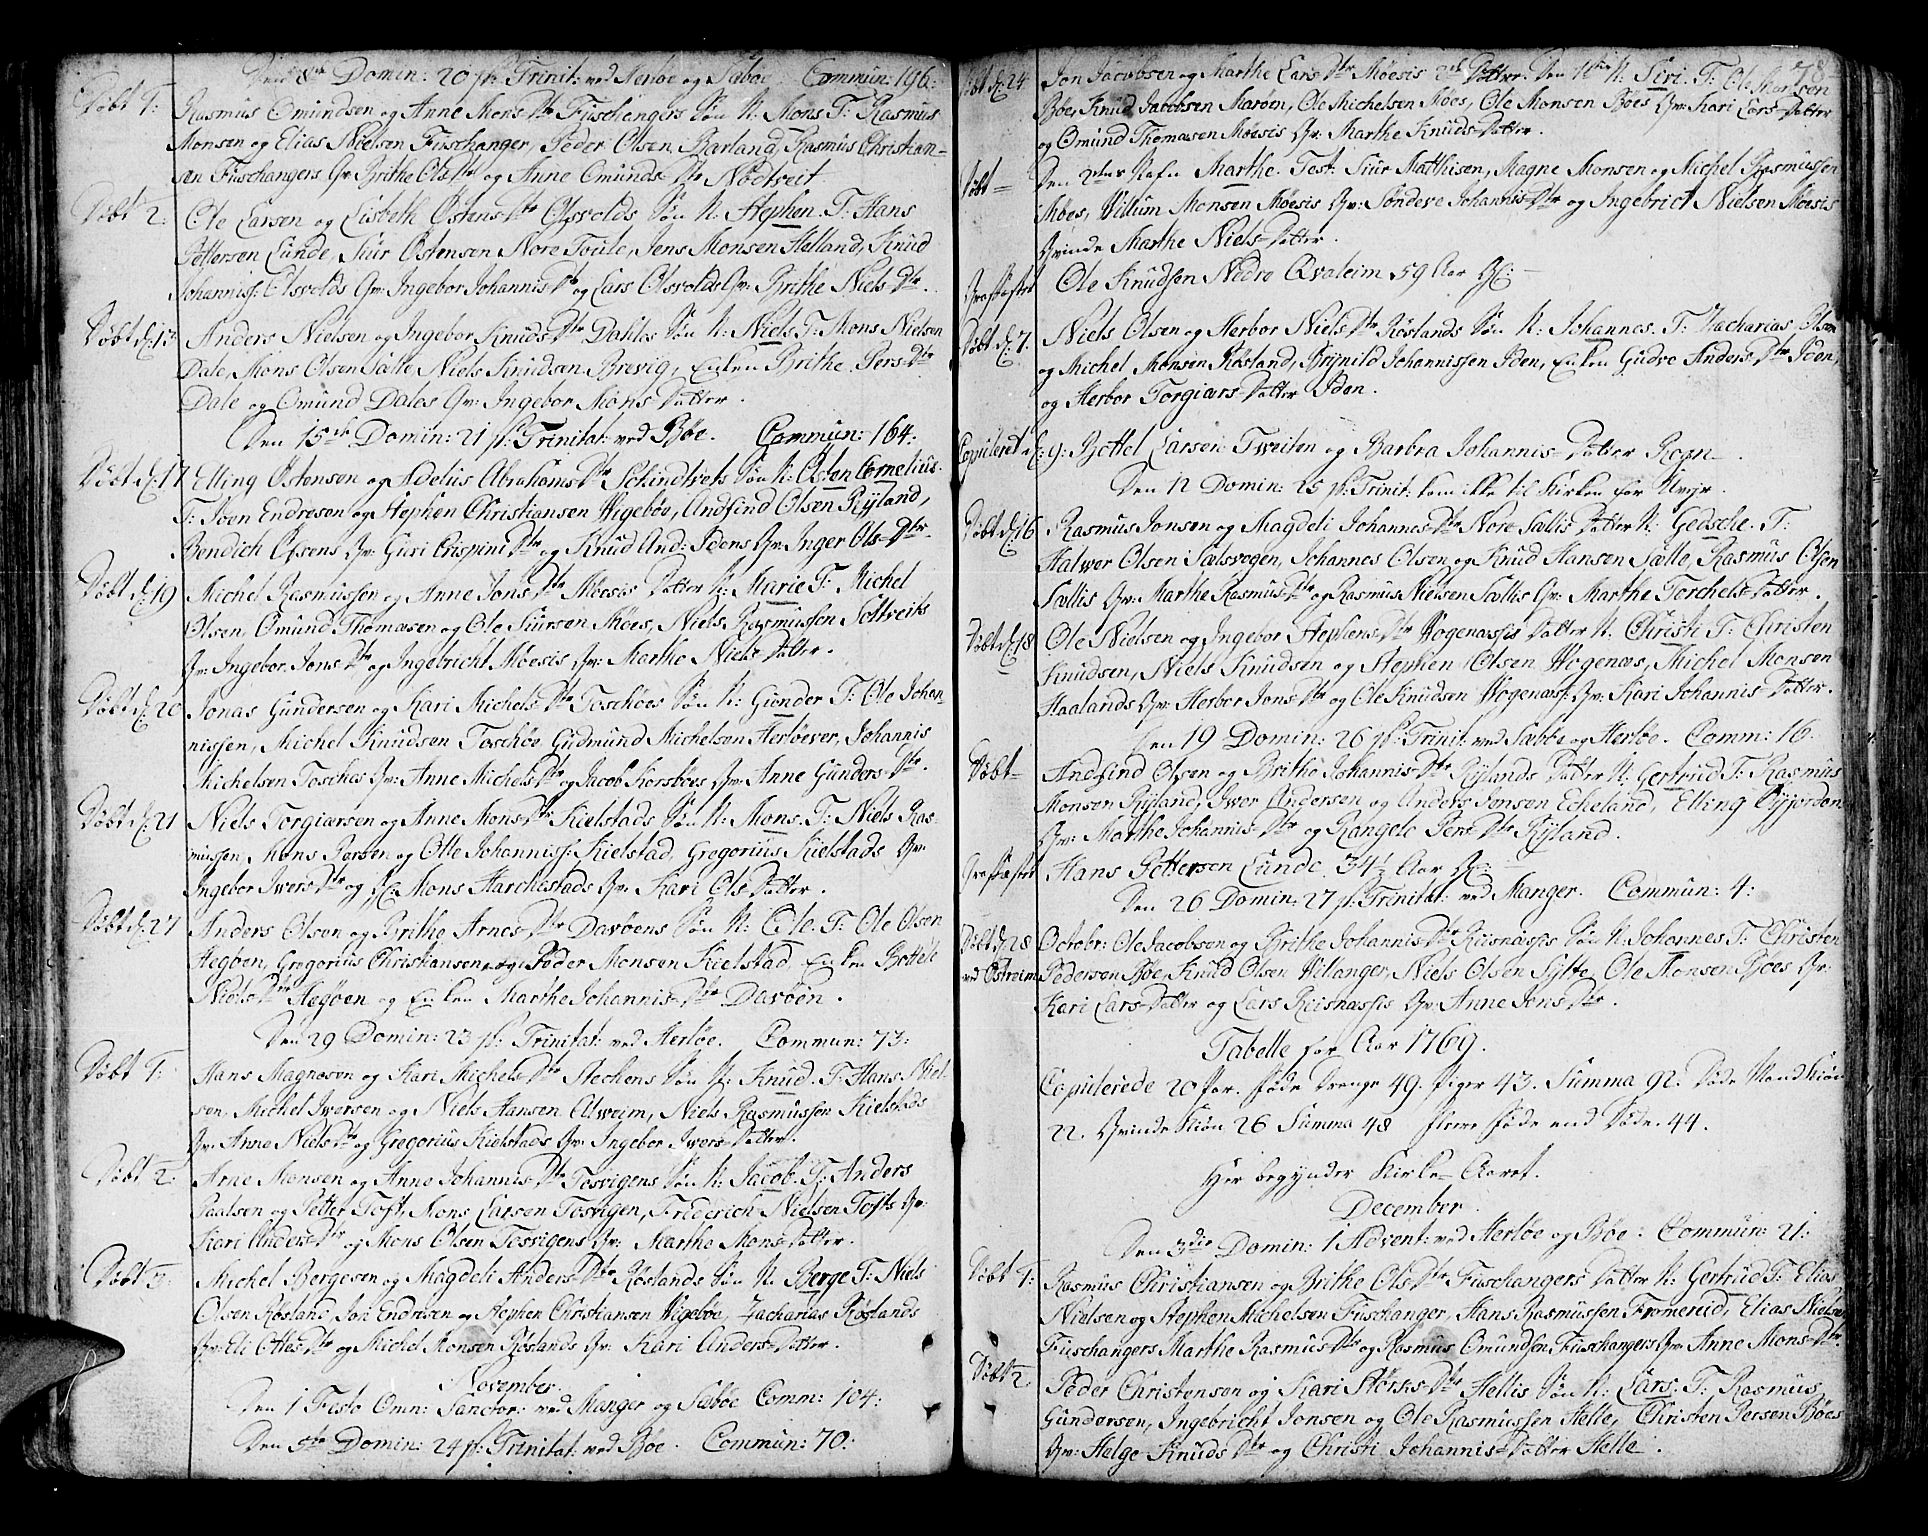 Den 8de Domin: 20 p: Trinit: ved Herløe og Sæbøe Commun: 196:
Døbt 1: Rasmus Omundsen og Anne Mons Dtr Fuschangers Søn N: Mons T: Rasmus
Monsen og Elias Nielsen Fuschanger, Peder Olsen Rarland, Rasmus Christian-
sen Fuschangers Qv: Brithe Ols Dtr og Anne Omunds Dtr Nødtveit
Døbt 2: Ole Larsen og Lisbeth Østens Dtr Olsvolds Søn N: Stephen. T: Hans
Pettersen Lunde, Siur Østensen Nore Toule, Jens Monsen Helland, Knud
Johanniss: Olsvolds Qv: Ingebor Johannis Dtr og Lars Olsvolds Qv: Brithe Niels Dtr.
Døbt d: 13 Anders Nielsen og Ingebor Knuds Dtr Dahles Søn N: Niels. T: Mons Nielsen
Dale, Mons Olsen Sætte, Niels Knudsen Brevig, Enken Brithe Pers Dtr
Dale og Omund Dales Qv: Ingebor Mons Datter.
Den 15de Domin: 21 p: Trinitat: ved Bøe. Commun: 164:
Døbt d: 17 Elling Østensen og Adelus Abrahams Dtr Schindtvets Søn N: Østen Cornelius.
T: Iven Endresen og Stephen Christiansen Wigebøe, Andfind Olsen Ryland,
Bendich Olsens Qv: Guri Crispini Dtr og Knud And: Idens Qv: Inger Ols Dtr.
Døbt d: 19 Michel Rasmussen og Anne Jons Dtr Møesis Datter N: Marie T: Michel
Olsen, Omund Thomæsen og Ole Siursen Møes, Niels Rasmussen Soltveits
Qv: Ingebor Jons Dtr og Ingebricht Møesis Qv: Marthe Niels Datter.
Døbt d: 20 Jonas Gundersen og Kari Michels Dtr Toschøes Søn N: Gunder T: Ole Johan-
nissen, Michel Knudsen Toschøe, Gudmund Michelsen Herløever, Johannis
Michelsen Toschøes Qv: Anne Michels Dtr og Jacob Korsøes Qv: Anne Gunders Dtr.
Døbt d: 21 Niels Torgiærsen og Anne Mons Dtr Kielstads Søn N: Mons. T: Niels Ras-
mussen, Mons Persen og Otte Johanniss: Kielstad, Gregorius Kielstads Qv:
Ingebor Iwers Dtr og Mons Harchestads Qv: Kari Ols Datter.
Døbt d: 27 Anders Olsen og Brithe Arnes Dtr Davøens Søn N: Ole. T: Ole Olsen
Hegøen, Gregorius Christiansen og Peder Monsen Kielstad, Enken Bottele
Niels Dtr Hegøen og Enken Marthe Johannis Dtr Davøen.
Den 29 Domin: 23 p: Trinitat: ved Herløe. Commun: 73:
Døbt 1: Hans Magnesen og Kari Michels Dtr Stechens Søn N: Knud. T: Hans Niel-
sen, Michel Iwersen og Niels Hansen Alweim, Niels Rasmussen Kielstads
Qv: Anne Niels Dtr og Gregorius Kielstads Qv: Ingebor Iwers Datter.
Døbt 2: Arne Monsen og Anne Johannis Dtr Tosvigens Søn N: Jacob. T: Anders
Paalsen og Petter Toft, Mons Larsen Tosvigen, Frederich Nielsen Tofts Qv:
Kari Anders Dtr og Mons Olsen Tosvigens Qv: Marthe Mons Datter.
Døbt 3: Michel Bergesen og Magdeli Anders Dtr Røslands Søn N: Berge T: Niels
Olsen Røsland, Jon Endresen og Stephen Christiansen Wigebøe, Zacharias Røslands
Qv: Eli Ottes Dtr og Michel Monsen Røslands Qv: Kari Anders Datter.
November.
Den 1 Festo Omn: Sanctor: ved Manger og Sæbøe Comm: 104:
Den 5te Domin: 24 p: Trinitat: ved Bøe. Commun: 70:
78
Døbt d: 24 Jon Jacobsen og Marthe Lars Dtr Møesis Døttre. Den N: Siri. T: Ole
Bøe, Knud Jacobsen Marøen, Ole Michelsen Møes, Ole Monsen Bøes Qv: Kari Lars Datter
og Omund Thomæsen Møesis Qv: Marthe Knuds Datter.
Døbt Den 2den Nafn Marthe. Test: Siur Matthisen, Magne Monsen og Michel Rasmussen
Møes, Willum Monsen Møesis Qv: Sønneve Johannis Dtr og Ingebrict Nielsen Møesis
Qvinde Marthe Niels Datter.
Græsfæstet Ole Knudsen Nedre Qvaleim 59 Aar
Døbt d: 7. Niels Olsen og Herbor Niels Dtr Røslands Søn N: Johannes. T: Zacharias Olsen
og Michel Monsen Røsland, Brynild Johannissen Iden, Enken Gudve Anders Dtr Iden,
og Herbor Torgiærs Datter Iden.
Copuleret d: 9: Bottel Larsen Tweiten og Barbra Johannis Datter Rogn.
Den 12 Domin: 25 p: Trinit: kom ikke til Kirken for Uvejr.
Døbt d: 16 Rasmus Jonsen og Magdeli Johannes Dtr Nore Sællis Datter N: Gedsche. T:
Halwor Olsen Sælsvogen, Johannes Olsen og Knud Hansen Sælle, Rasmus Olsen
Sællis Qv: Marthe Rasmus Dtr og Rasmus Nielsen Sællis Qv: Marthe Torchels Datter.
Døbt d: 18 Ole Nielsen og Ingebor Stephens Dtr Wogenæssis Datter N: Christi T: Christen
Knudsen, Niels Knudsen og Stephen Olsen Wogenæs, Michel Monsen
Haalands Qv: Herbor Jons Dtr og Ole Knudsen Wogenæss: Qv: Kari Johannis Datter.
Den 19 Domin: 26 p: Trinit: ved Sæbøe og Herløe. Comm: 16.
Døbt Andfind Olsen og Brithe Johannis Dtr Rylands Datter N: Gertrud T: Rasmus
Monsen Ryland, Iwer Andersen og Anders Jonsen Echeland, Elling Øyjorden
Qv: Marthe Johannis Dtr og Rangele Pers Dtr Ryland.
Græsfæstet Hans Pettersen Lunde 34½ Aar
Den 26 Domin: 27 p: Trinitat: ved Manger. Commun: 4:
Døbt d: 28 ved Østreim Octobr: Ole Jacobsen og Brithe Johannis Dtr Risnæssis Søn N: Johannes T: Christen
Pedersen Bøe, Knud Olsen Villanger, Niels Olsen Sylte, Ole Monsen Bøes Qv:
Kari Lars Datter og Lars Reisnæssis Qv: Anne Jens Dtr.
Tabelle for Aar 1769.
Copulerede 20 Par. Føde Drenge 49. Piger 43. Summa 92. Døde Mandkiøn
22. Qvindekiøn 26 Summa 48 flere føde end Døde. 44.
Her begynder Kirke-Aaret.
December.
Den 3die Domin: 1 Advent: ved Herløe og Bøe: Commun: 21:
Døbt 1: Rasmus Christiansen og Brithe Ols Dtr Fuschangers Datter N: Gertrud T: Elias
Nielsen og Stephen Michelsen Fuschanger, Hans Rasmussen Fromereid, Elias Nielsen
Fuschangers Marthe Rasmus Dtr og Rasmus Omundsen Fuschangers Qv: Anne Mons Dtr.
Døbt 2. Peder Christensen og Kari Størks Dtr Hellis Søn N: Lars. T: Rasmus
Gundersen, Ingebricht Jonsen og Ole Rasmussen Helle, Christen Persen Bøes
Qv: Helge Knuds Dtr og Christi Johannis Datter Helle.